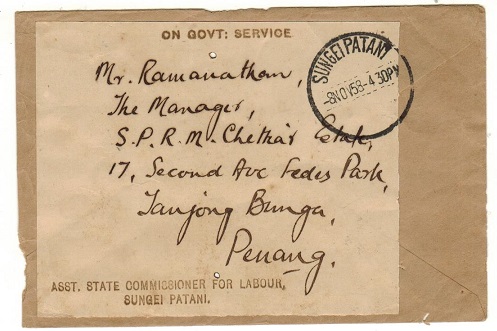 ON GOVT: SERVICE
SUNGEI PATANI
-8NOV58-4 30PM
Mr. Ramanathan,
The Manager,
S.P.R.M. Chettiar Estate,
17, Second Ave Fedes Park,
Tanjong Bunga,
Penang.
ASST. STATE COMMISSIONER FOR LABOUR,
SUNGEI PATANI.